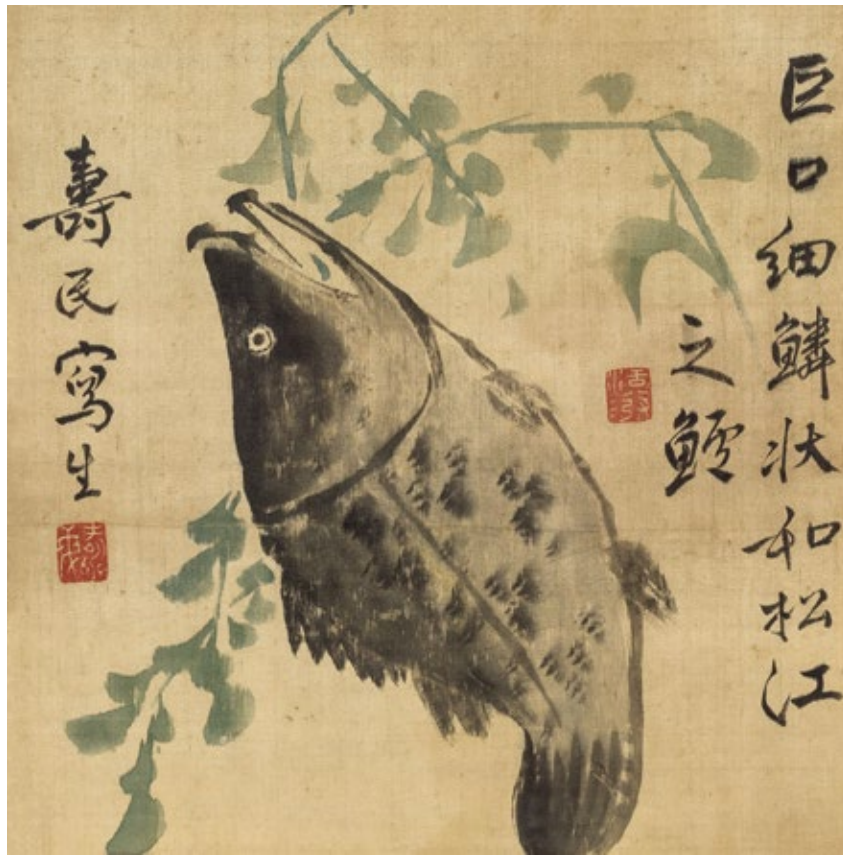 巨口细鳞状和松江
之鲈
壽民寫生